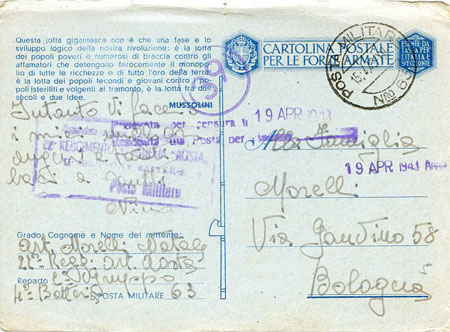 Questa lotta gigantesca non è che una fase e lo
sviluppo logico della nostra rivoluzione; è la lotta
dei popoli poveri e numerosi di braccia contro gli
affamatori che detengono ferocemente il monopo-
lio di tutte le ricchezze e di tutto l'oro della terra
è la lotta dei popoli fecondi e giovani contro i po-
poli isteriliti e volgenti al tramonto, è la lotta tra due
secoli e due idee.
MUSSOLINI
CARTOLINA POSTALE
PER LE FORZE ARMATE
ESENTE DA
TASSA PER
POSTA MILITARE
Nº
39
19 APR 1943
censura
Posta per
Intanto vi faccio
i
auguri e
baci a
Nino
REGGIMENTO
AOSTA
Posta Militare
Alla Famiglia
19 APR 1943
Morelli
Via Gandino 58
Bologna
Grado, Cognome e Nome del mittente:
Art. Morelli Natale
Regg. art. Aosta
Reparto
4ª Batteria POSTA MILITARE 63